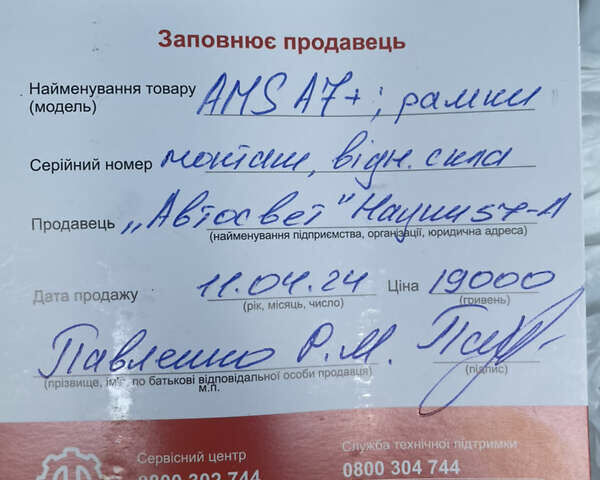 Заповнює продавець
Найменування товару (модель) AMS A7+; рамки
Серійний номер монтаж, відн. скла
Продавець „Автосвет" Науки 57-А
(найменування підприємства, організації, юридична адреса)
Дата продажу 11.04.24 Ціна 19000
(рік, місяць, число) (гривень)
Павленко Р.М.
(прізвище, ім'я, по батькові відповідальної особи продавця) (підпис)
м.п.
Сервісний центр Служба технічної підтримки
0800 302 744 0800 304 744